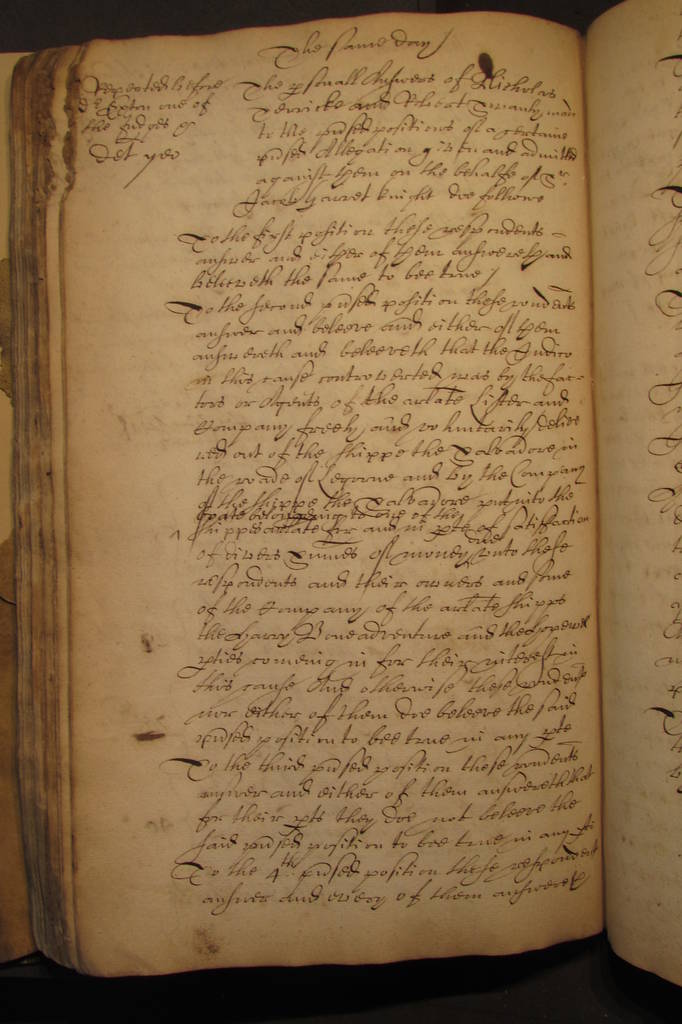 The same day
Repeated before
Dr Exton one of
the Judges &
det yeo
The psonall Answers of Nicholas
Derricke and Robert Swanly, made
to the pnsed positions of a certaine
pnsed Allegation given and admitted
against them on the behalfe of Sr.
Jacob Garret knight doe followe
To the first position these respondents
answer and either of them answereth and
beleeveth the same to bee true /
To the second pnsed position these rondents
answer and beleeve and either of them
answereth and beleeveth that the Indico
in this cause controverted was by the fac-
tors or Agents of the arlate Lister and
Company freely and voluntarily delive
red out of the shippe the Salvadore in
the roade of Legorne and by the Company
of the shippe the Salvadore put into the
boate belonging to one of the
shipps arlate for and in pte of satisfaction
of divers summes of money due unto these
respondents and their owners and some
of the Company of the arlate shipps
the Harry Bonadventure and the Hopewell
pties coming in for their interest in
this cause And otherwise these rondents
nor either of them doe beleeve the said
pnsed position to bee true in any pte
To the third pnsed position these rondents
answer and either of them answereth that
for their pts they doe not beleeve the
said pnsed position to bee true in any pte
To the 4th pnsed position these respondents
answer and every of them answereth